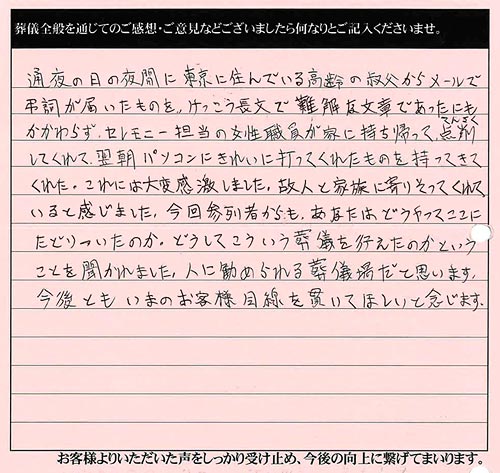 葬儀全般を通じてのご感想・ご意見などございましたら何なりとご記入くださいませ。
通夜の日の夜間に東京に住んでいる高齢の叔父からメールで
弔詞が届いたものを、けっこう長文で難解な文章であったにも
かかわらず、セレモニー担当の女性職員が家に持ち帰って、点削(てんさく)
してくれて、翌朝パソコンにきれいに打ってくれたものを持ってきて
くれた。これには大変感激しました。故人と家族に寄りそってくれて
いると感じました。今回参列者からも、あなたはどうやってここに
たどりついたのか。どうしてこういう葬儀を行えたのかという
ことを聞かれました。人に勧められる葬儀場だと思います。
今後ともいまのお客様目線を貫いてほしいと念じます。
お客様よりいただいた声をしっかり受け止め、今後の向上に繋げてまいります。